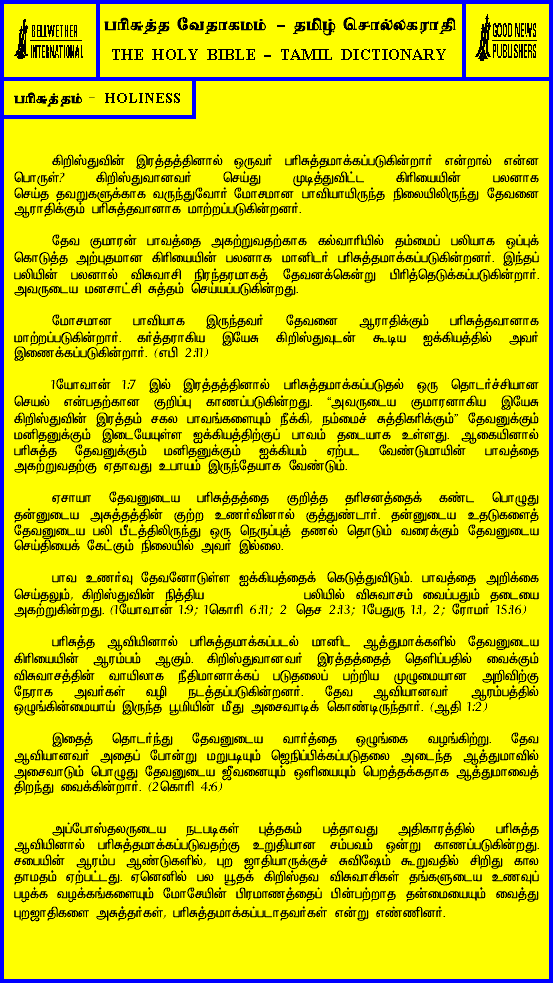 BELLWETHER
INTERNATIONAL
பரிசுத்த வேதாகமம் - தமிழ் சொல்லகராதி
THE HOLY BIBLE - TAMIL DICTIONARY
GOOD NEWS
PUBLISHERS
பரிசுத்தம் - HOLINESS
கிறிஸ்துவின் இரத்தத்தினால் ஒருவர் பரிசுத்தமாக்கப்படுகின்றார் என்றால் என்ன
பொருள்? கிறிஸ்துவானவர் செய்து முடித்துவிட்ட கிரியையின் பலனாக
செய்த தவறுகளுக்காக வருந்துவோர் மோசமான பாவியாயிருந்த நிலையிலிருந்து தேவனை
ஆராதிக்கும் பரிசுத்தவானாக மாற்றப்படுகின்றனர்.
தேவ குமாரன் பாவத்தை அகற்றுவதற்காக கல்வாரியில் தம்மைப் பலியாக ஒப்புக்
கொடுத்த அற்புதமான கிரியையின் பலனாக மானிடர் பரிசுத்தமாக்கப்படுகின்றனர். இந்தப்
பலியின் பலனால் விசுவாசி நிரந்தரமாகத் தேவனக்கென்று பிரித்தெடுக்கப்படுகின்றார்.
அவருடைய மனசாட்சி சுத்தம் செய்யப்படுகின்றது.
மோசமான பாவியாக இருந்தவர் தேவனை ஆராதிக்கும் பரிசுத்தவானாக
மாற்றப்படுகின்றார். கர்த்தராகிய இயேசு கிறிஸ்துவுடன் கூடிய ஐக்கியத்தில் அவர்
இணைக்கப்படுகின்றார். (எபி 2:11)
1யோவான் 1:7 இல் இரத்தத்தினால் பரிசுத்தமாக்கப்படுதல் ஒரு தொடர்ச்சியான
செயல் என்பதற்கான குறிப்பு காணப்படுகின்றது. “அவருடைய குமாரனாகிய இயேசு
கிறிஸ்துவின் இரத்தம் சகல பாவங்களையும் நீக்கி, நம்மைச் சுத்திகரிக்கும்” தேவனுக்கும்
மனிதனுக்கும் இடையேயுள்ள ஐக்கியத்திற்குப் பாவம் தடையாக உள்ளது. ஆகையினால்
பரிசுத்த தேவனுக்கும் மனிதனுக்கும் ஐக்கியம் ஏற்பட வேண்டுமாயின் பாவத்தை
அகற்றுவதற்கு ஏதாவது உபாயம் இருந்தேயாக வேண்டும்.
ஏசாயா தேவனுடைய பரிசுத்தத்தை குறித்த தரிசனத்தைக் கண்ட பொழுது
தன்னுடைய அசுத்தத்தின் குற்ற உணர்வினால் குத்துண்டார். தன்னுடைய உதடுகளைத்
தேவனுடைய பலி பீடத்திலிருந்து ஒரு நெருப்புத் தணல் தொடும் வரைக்கும் தேவனுடைய
செய்தியைக் கேட்கும் நிலையில் அவர் இல்லை.
பாவ உணர்வு தேவனோடுள்ள ஐக்கியத்தைக் கெடுத்துவிடும். பாவத்தை அறிக்கை
செய்தலும், கிறிஸ்துவின் நித்திய பலியில் விசுவாசம் வைப்பதும் தடையை
அகற்றுகின்றது. (1யோவான் 1:9; 1கொரி 6:11; 2 தெச 2:13; 1பேதுரு 1:1, 2; ரோமர் 15:16)
பரிசுத்த ஆவியினால் பரிசுத்தமாக்கப்படல் மானிட ஆத்துமாக்களில் தேவனுடைய
கிரியையின் ஆரம்பம் ஆகும். கிறிஸ்துவானவர் இரத்தத்தைத் தெளிப்பதில் வைக்கும்
விசுவாசத்தின் வாயிலாக நீதிமானாக்கப் படுதலைப் பற்றிய முழுமையான அறிவிற்கு
நேராக அவர்கள் வழி நடத்தப்படுகின்றனர். தேவ ஆவியானவர் ஆரம்பத்தில்
ஒழுங்கின்மையாய் இருந்த பூமியின் மீது அசைவாடிக் கொண்டிருந்தார். (ஆதி 1:2)
இதைத் தொடர்ந்து தேவனுடைய வார்த்தை ஒழுங்கை வழங்கிற்று. தேவ
ஆவியானவர் அதைப் போன்று மறுபடியும் ஜெநிப்பிக்கப்படுதலை அடைந்த ஆத்துமாவில்
அசைவாடும் பொழுது தேவனுடைய ஜீவனையும் ஒளியையும் பெறத்தக்கதாக ஆத்துமாவைத்
திறந்து வைக்கின்றார். (2கொரி 4:6)
அப்போஸ்தலருடைய நடபடிகள் புத்தகம் பத்தாவது அதிகாரத்தில் பரிசுத்த
ஆவியினால் பரிசுத்தமாக்கப்படுவதற்கு உறுதியான சம்பவம் ஒன்று காணப்படுகின்றது.
சபையின் ஆரம்ப ஆண்டுகளில், புற ஜாதியாருக்குச் சுவிஷேம் கூறுவதில் சிறிது கால
தாமதம் ஏற்பட்டது. ஏனெனில் பல யூதக் கிறிஸ்தவ விசுவாசிகள் தங்களுடைய உணவுப்
பழக்க வழக்கங்களையும் மோசேயின் பிரமாணத்தைப் பின்பற்றாத தன்மையையும் வைத்து
புறஜாதிகளை அசுத்தர்கள், பரிசுத்தமாக்கப்படாதவர்கள் என்று எண்ணினர்.